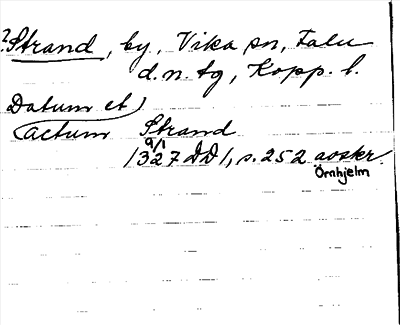 ? Strand, by, Vika sn, Falu
d. n. tg, Kopp. l.
Datum et
actum Strand
9/1
1327 DD 1, s. 252 avskr.
Örnhjelm